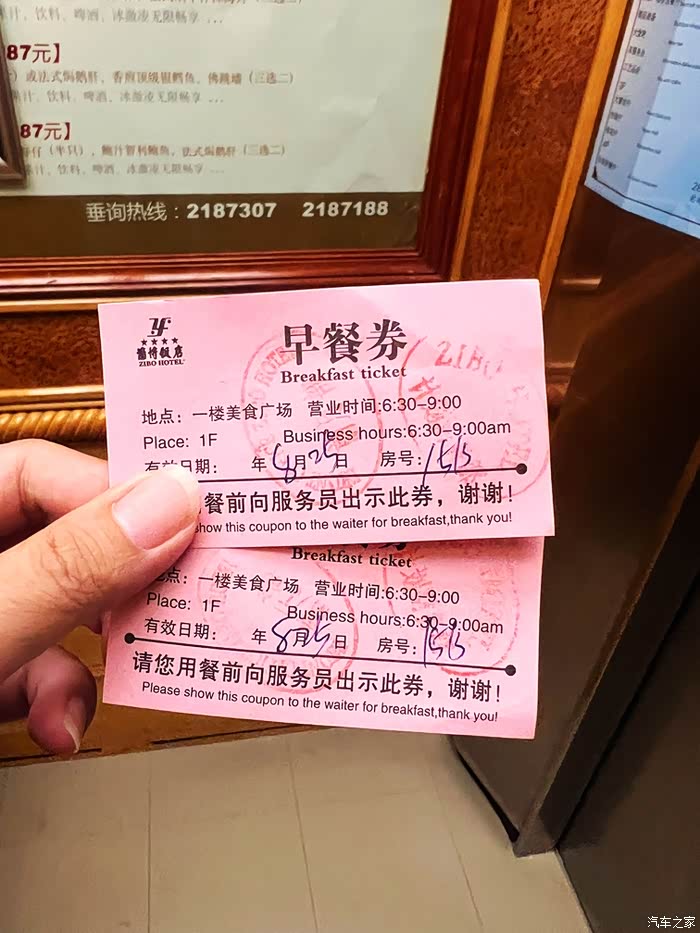 果汁、饮料、啤酒、冰激凌无限畅享 ...
87元】
）或法式焗鹅肝，香煎顶级银鳕鱼，佛跳墙（三选二）
果汁、饮料、啤酒、冰激凌无限畅享 ...
87元】
仔（半只），鲍汁智利鲍鱼，法式焗鹅肝（三选二）
果汁、饮料、啤酒、冰激凌无限畅享 ...
垂询热线：2187307 2187188
淄博饭店
ZIBO HOTEL
早餐券
Breakfast ticket
地点：一楼美食广场 营业时间:6:30-9:00
Place: 1F Business hours:6:30-9:00am
有效日期： 年 8月25日 房号：1513
餐前向服务员出示此券，谢谢！
show this coupon to the waiter for breakfast,thank you!
Breakfast ticket
地点：一楼美食广场 营业时间:6:30-9:00
Place: 1F Business hours:6:30-9:00am
有效日期： 年 8月25日 房号：1513
请您用餐前向服务员出示此券，谢谢！
Please show this coupon to the waiter for breakfast,thank you!
汽车之家